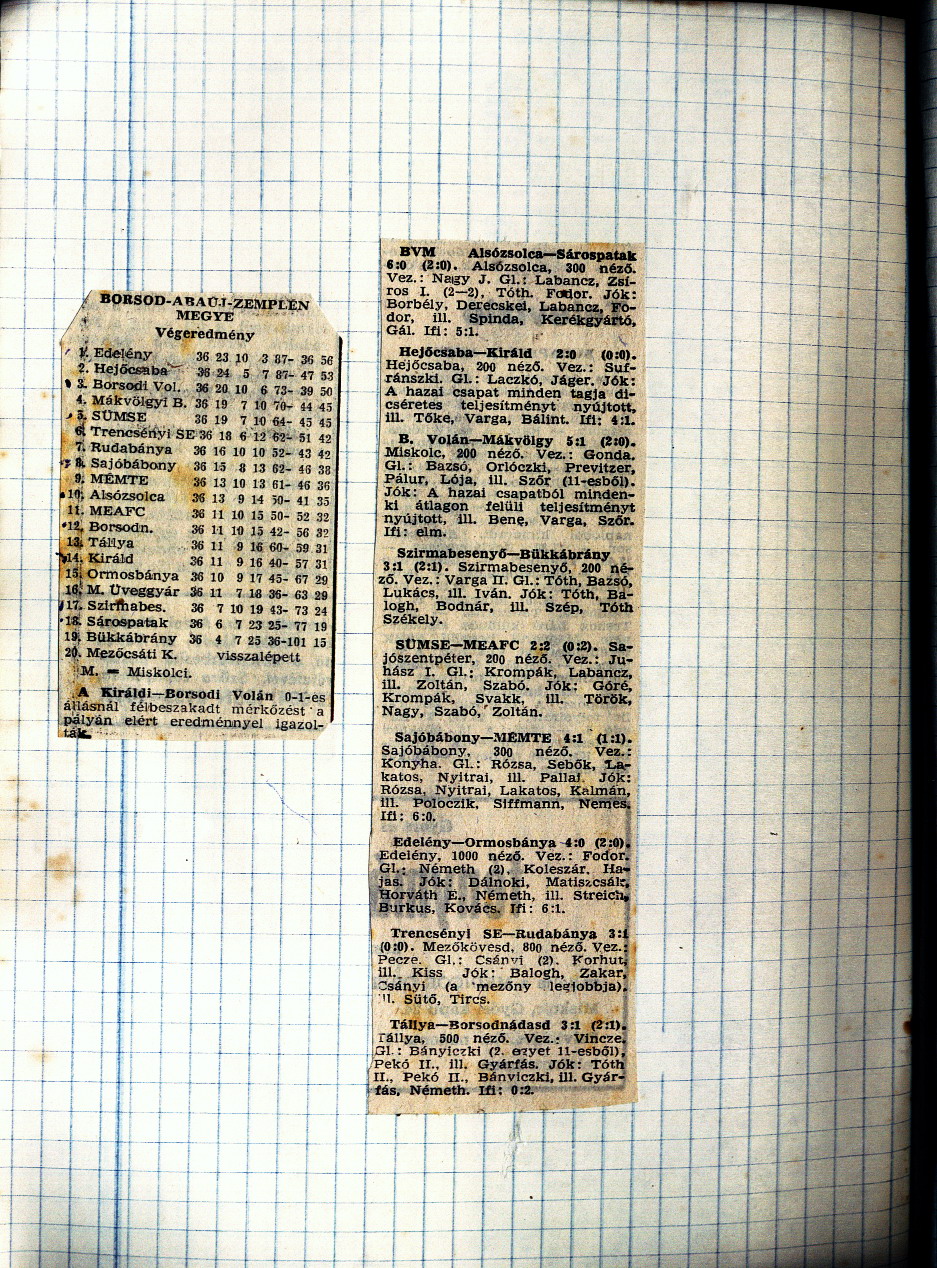 BORSOD-ABAÚJ-ZEMPLÉN
MEGYE
Végeredmény
1. Edelény 36 23 10 3 87- 36 56
2. Hejőcsaba 36 24 5 7 87- 47 53
3. Borsodi Vol. 36 20 10 6 73- 39 50
4. Mákvölgyi B. 36 19 7 10 70- 44 45
5. SÜMSE 36 19 7 10 64- 45 45
6. Trencsényi SE 36 18 6 12 62- 51 42
7. Rudabánya 36 16 10 10 52- 43 42
8. Sajóbábony 36 15 8 13 62- 46 38
9. MÉMTE 36 13 10 13 61- 46 36
10. Alsózsolca 36 13 9 14 50- 41 35
11. MEAFC 36 11 10 15 50- 52 32
12. Borsodn. 36 11 10 15 42- 56 32
13. Tállya 36 11 9 16 60- 59 31
14. Királd 36 11 9 16 40- 57 31
15. Ormosbánya 36 10 9 17 45- 67 29
16. M. Üveggyár 36 11 7 18 36- 63 29
17. Szirmabes. 36 7 10 19 43- 73 24
18. Sárospatak 36 6 7 23 25- 77 19
19. Bükkábrány 36 4 7 25 36-101 15
20. Mezőcsáti K. visszalépett
M. = Miskolci.
A Királdi—Borsodi Volán 0-1-es
állásnál félbeszakadt mérkőzést a
pályán elért eredménnyel igazol-
ták.
BVM Alsózsolca—Sárospatak
6:0 (2:0). Alsózsolca, 300 néző.
Vez.: Nagy J. Gl.: Labancz, Zsí-
ros I. (2—2), Tóth. Fodor. Jók:
Borbély, Derecskei, Labancz, Fo-
dor, ill. Spinda, Kerékgyártó,
Gál. Ifi: 5:1.
Hejőcsaba—Királd 2:0 (0:0).
Hejőcsaba, 200 néző. Vez.: Suf-
ránszki. Gl.: Laczkó, Jáger. Jók:
A hazai csapat minden tagja di-
cséretes teljesítményt nyújtott,
ill. Tőke, Varga, Bálint. Ifi: 4:1.
B. Volán—Mákvölgy 5:1 (2:0).
Miskolc, 200 néző. Vez.: Gonda.
Gl.: Bazsó, Orlóczki, Previtzer,
Pálur, Lója, ill. Szőr (11-esből).
Jók: A hazai csapatból minden-
ki átlagon felüli teljesítményt
nyújtott, ill. Bene, Varga, Szőr.
Ifi: elm.
Szirmabesenyő—Bükkábrány
3:1 (2:1). Szirmabesenyő, 200 né-
ző. Vez.: Varga II. Gl.: Tóth, Bazsó,
Lukács, ill. Iván. Jók: Tóth, Ba-
logh, Bodnár, ill. Szép, Tóth
Székely.
SÜMSE—MEAFC 2:2 (0:2). Sa-
jószentpéter, 200 néző. Vez.: Ju-
hász I. Gl.: Krompák, Labancz,
ill. Zoltán, Szabó. Jók: Góré,
Krompák, Svakk, ill. Török,
Nagy, Szabó, Zoltán.
Sajóbábony—MÉMTE 4:1 (1:1).
Sajóbábony, 300 néző. Vez.:
Konyha. Gl.: Rózsa, Sebők, La-
katos, Nyitrai, ill. Pallai. Jók:
Rózsa, Nyitrai, Lakatos, Kalmán,
ill. Poloczik, Siffmann, Nemes.
Ifi: 6:0.
Edelény—Ormosbánya 4:0 (2:0).
Edelény, 1000 néző. Vez.: Fodor.
Gl.: Németh (2), Koleszár, Ha-
jas. Jók: Dálnoki, Matiszcsák,
Horváth E., Németh, ill. Streich,
Burkus, Kovács. Ifi: 6:1.
Trencsényi SE—Rudabánya 3:1
(0:0). Mezőkövesd, 800 néző. Vez.:
Pecze. Gl.: Csányi (2). Korhut,
ill. Kiss Jók: Balogh, Zakar,
Csányi (a mezőny legjobbja).
ill. Sütő, Tircs.
Tállya—Borsodnádasd 3:1 (2:1).
Tállya, 500 néző. Vez.: Vincze.
Gl.: Bányiczki (2. egyet 11-esből),
Pekó II., ill. Gyárfás. Jók: Tóth
II., Pekó II., Bányiczki, ill. Gyár-
fás, Németh. Ifi: 0:2.